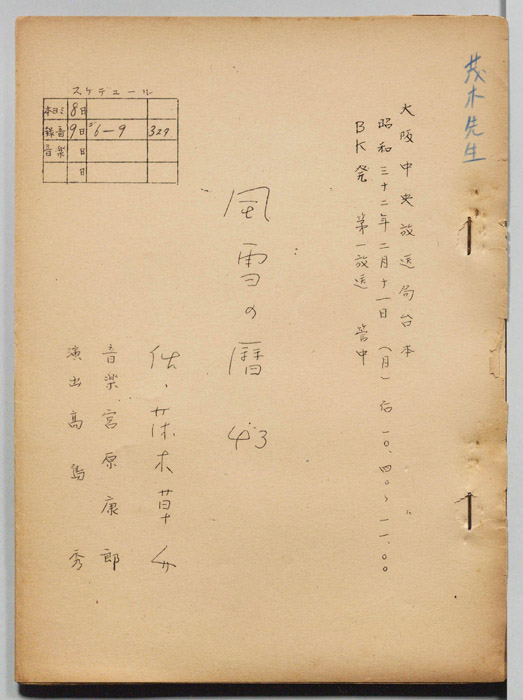 茂木先生
大阪中央放送局台本
昭和三十二年二月十一日（月）后一〇、四〇〜一一、〇〇
BK発 第一放送 管中
風雪の暦 43
作・茂木草介
音楽 宮原康郎
演出 高島 秀
スケジュール
本ヨミ 8日
録音 9日 6-9 327
音楽 日
日